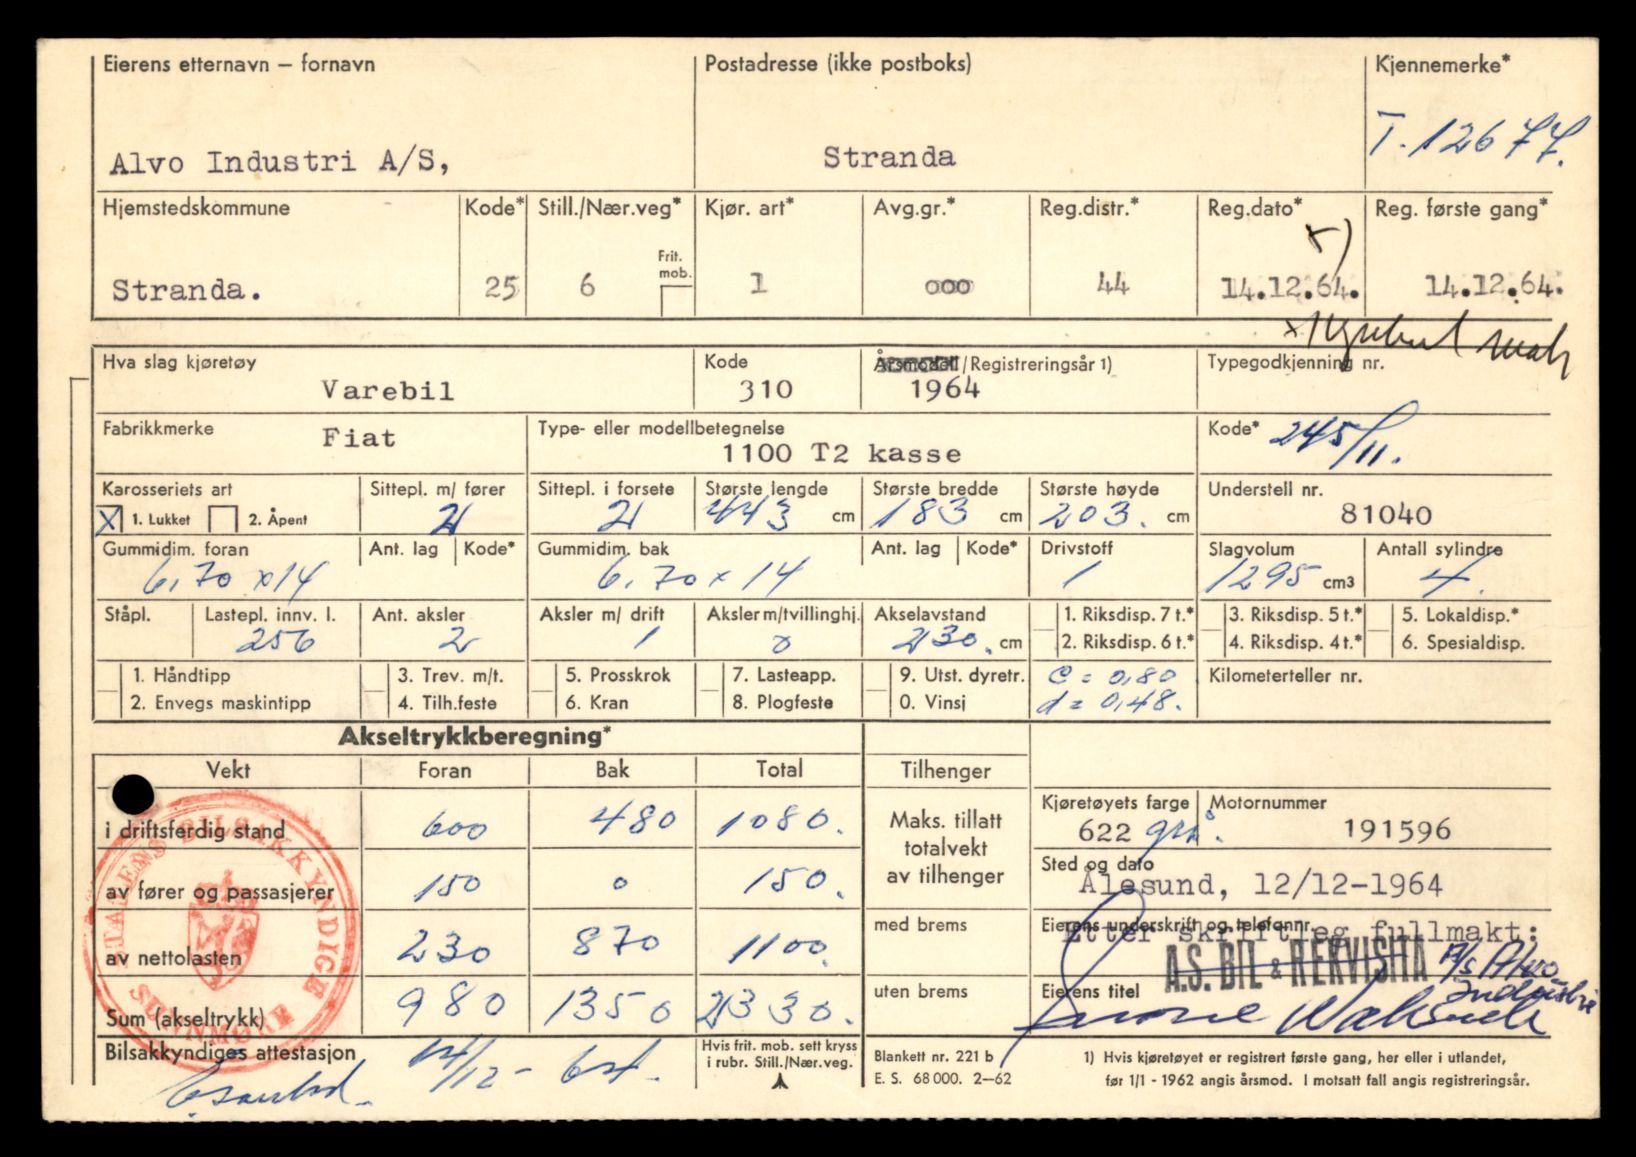 Eierens etternavn – fornavn Postadresse (ikke postboks) Kjennemerke*
Alvo Industri A/S, Stranda T. 12677.
Hjemstedskommune Kode* Still./Nær.veg* Kjør. art* Avg.gr.* Reg.distr.* Reg.dato* Reg. første gang*
Frit. mob.
x)
Stranda. 25 6 1 000 44 14.12.64. 14.12.64.
Hva slag kjøretøy Kode Årsmodell/Registreringsår 1) Typegodkjenning nr.
Varebil 310 1964
Fabrikkmerke Fiat Type- eller modellbetegnelse Kode* 245/11.
1100 T2 kasse
Karosseriets art Sittepl. m/ fører Sittepl. i forsete Største lengde Største bredde Største høyde Understell nr.
X 1. Lukket 2. Åpent 2 2 443 cm 183 cm 203. cm 81040
Gummidim. foran Ant. lag Kode* Gummidim. bak Ant. lag Kode* Drivstoff Slagvolum Antall sylindre
6,70 x 14 6,70 x 14 1 1295 cm3 4.
Ståpl. Lastepl. innv. l. Ant. aksler Aksler m/ drift Aksler m/tvillinghj. Akselavstand 1. Riksdisp. 7 t.* 3. Riksdisp. 5 t.* 5. Lokaldisp.*
256 2 1 0 230. cm 2. Riksdisp. 6 t.* 4. Riksdisp. 4 t.* 6. Spesialdisp.
1. Håndtipp 3. Trev. m/t. 5. Prosskrok 7. Lasteapp. 9. Utst. dyretr. c = 0,80 Kilometerteller nr.
2. Envegs maskintipp 4. Tilh.feste 6. Kran 8. Plogfeste 0. Vinsj d = 0,48.
Akseltrykkberegning*
Vekt Foran Bak Total Tilhenger
Kjøretøyets farge Motornummer
i driftsferdig stand 600 480 1080. Maks. tillatt totalvekt av tilhenger 622 grå. 191596
Sted og dato
av fører og passasjerer 150 0 150. Ålesund, 12/12-1964
med brems Eierens underskrift og telefonnr.
Etter skriftleg fullmakt:
av nettolasten 230 870 1100. A.S. BIL & REKVISITA A/s Alvo Industri
uten brems Eierens titel
Sum (akseltrykk) 980 1350 2330.
STATENS BILSAKKYNDIGE SUNNMØRE
Bilsakkyndiges attestasjon 14/12- 64. Hvis frit. mob. sett kryss i rubr. Still./Nær.veg. Blankett nr. 221 b 1) Hvis kjøretøyet er registrert første gang, her eller i utlandet,
E. S. 68 000. 2—62 før 1/1 - 1962 angis årsmod. I motsatt fall angis registreringsår.